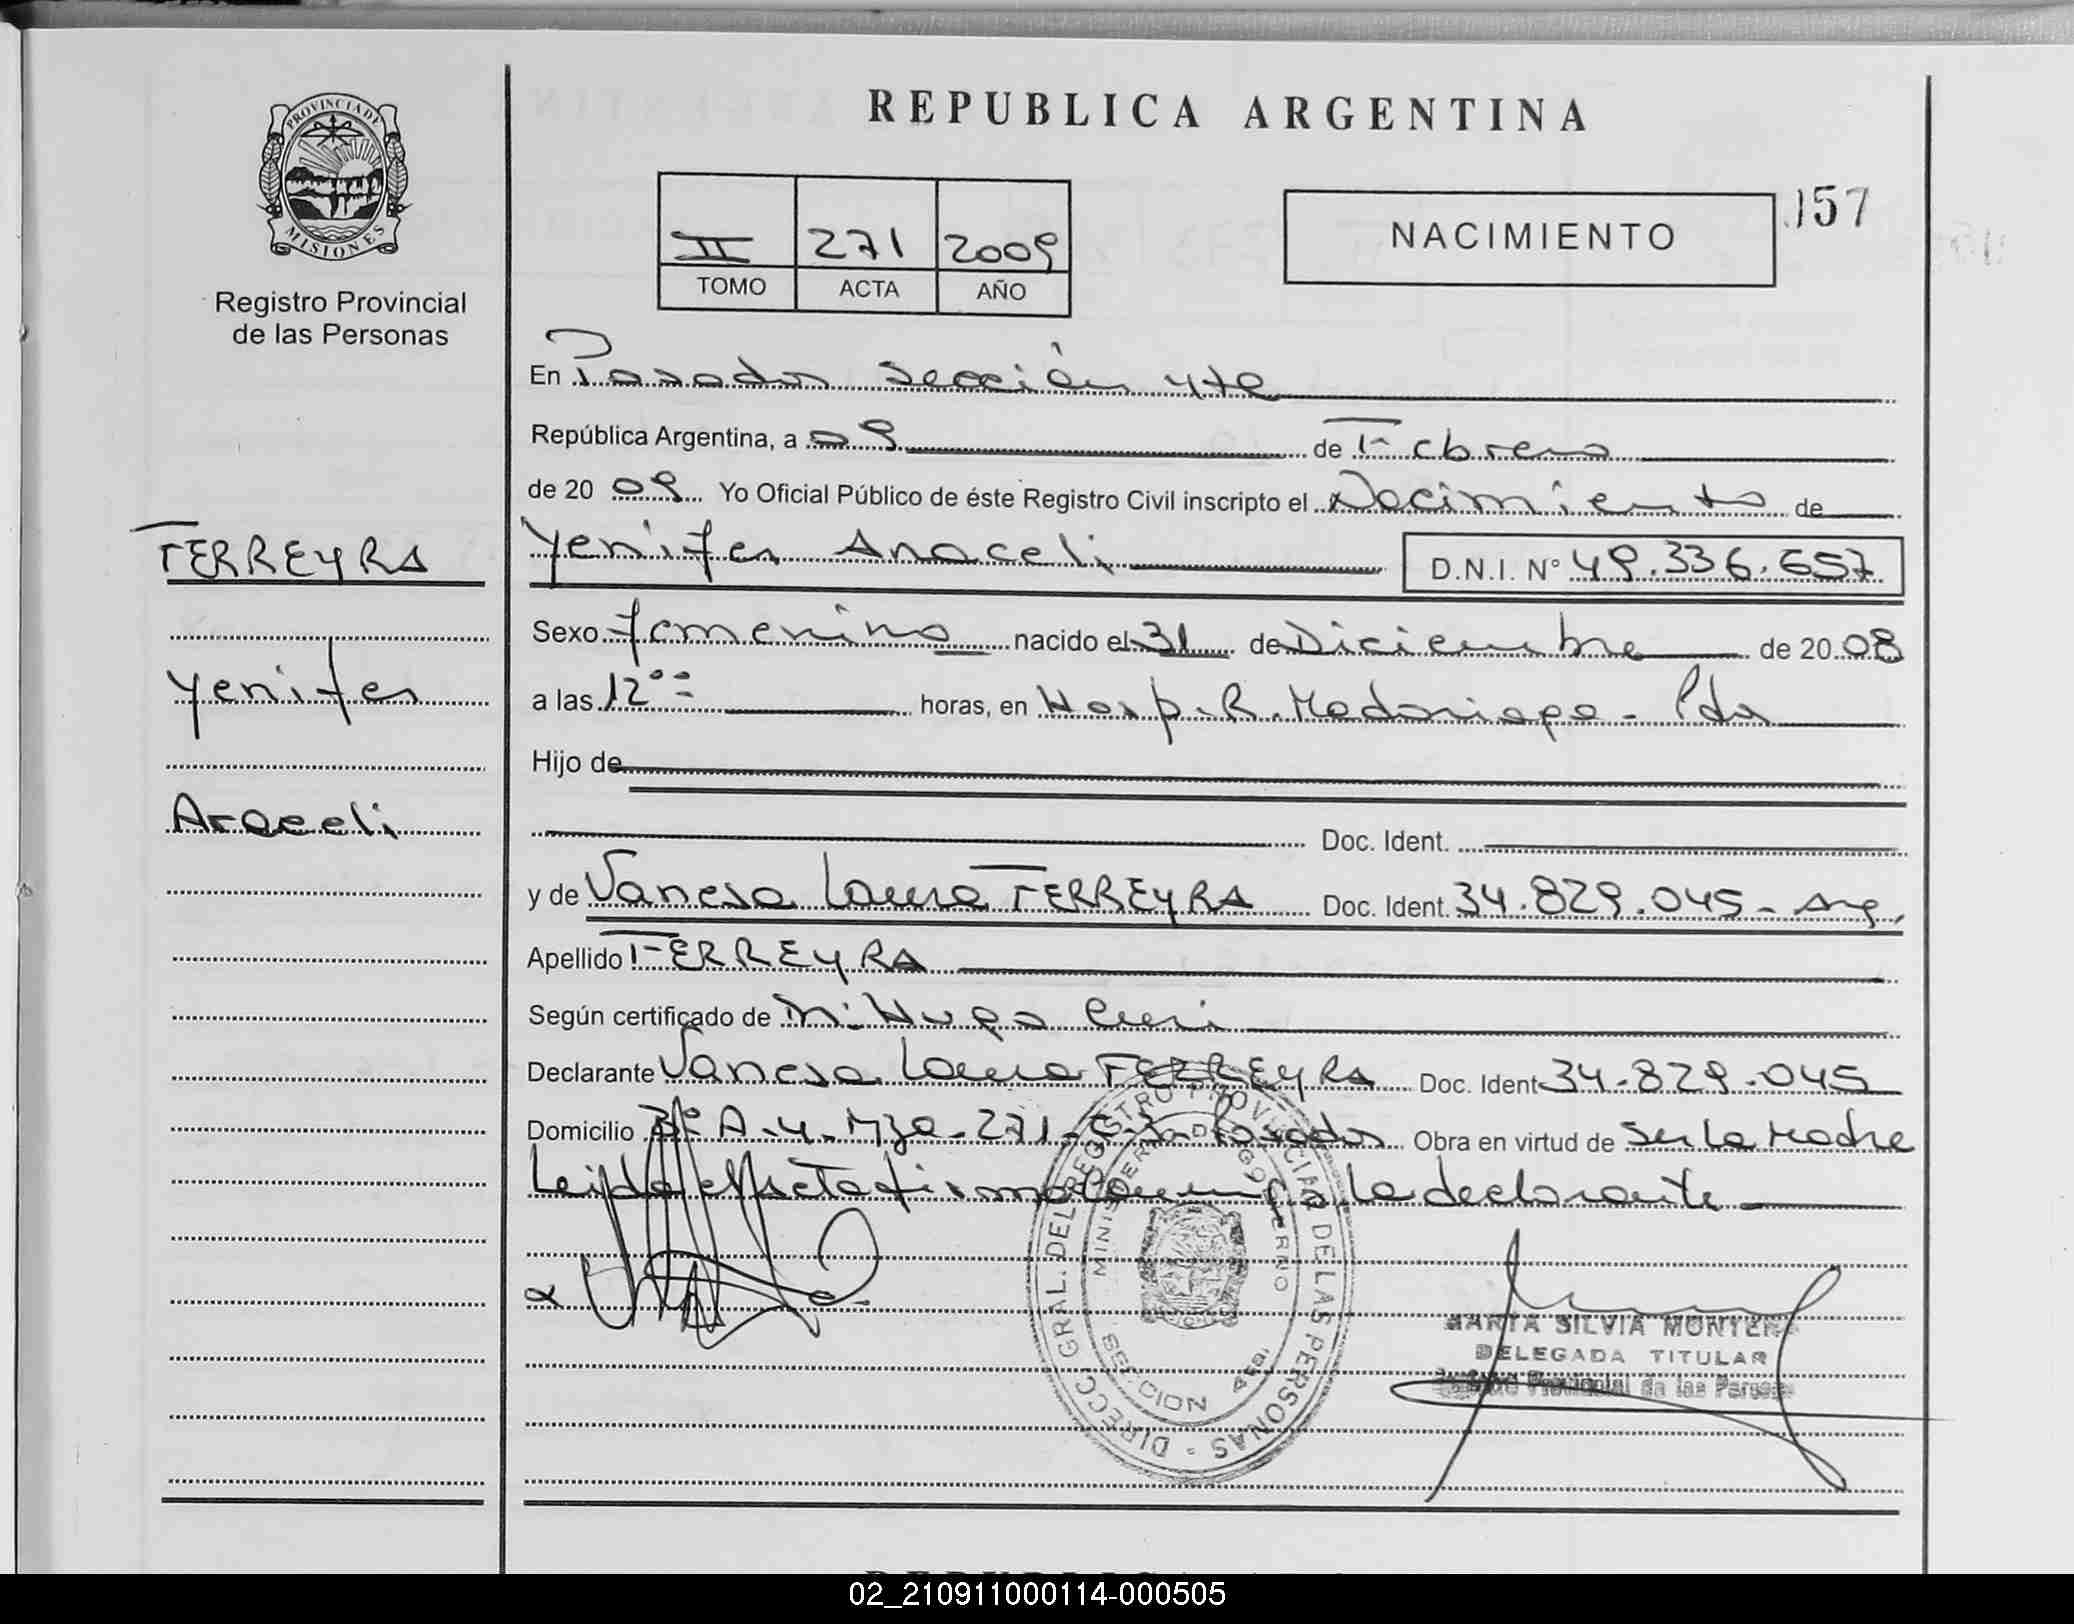 PROVINCIA DE
MISIONES
Registro Provincial
de las Personas
FERREYRA
Yenifer
Araceli
REPUBLICA ARGENTINA
II 271 2009
TOMO ACTA AÑO
NACIMIENTO
157
En Posadas sección 4ta
República Argentina, a 09 de Febrero
de 20 09 Yo Oficial Público de éste Registro Civil inscripto el Nacimiento de
Yenifer Araceli D.N.I. N° 49.336.657
Sexo femenino nacido el 31 de Diciembre de 20 08
a las 12°° horas, en Hosp. R. Madariaga - Pdas
Hijo de
Doc. Ident.
y de Vanesa Laura FERREYRA Doc. Ident. 34.829.045 - Arg.
Apellido FERREYRA
Según certificado de Dr. Hugo
Declarante Vanesa Laura FERREYRA Doc. Ident 34.829.045
Domicilio B° A-4-Mza-271-C-3- Posadas Obra en virtud de ser la Madre
Leida el Acta firma Conmigo la declarante
DIRECC GRAL. DEL REGISTRO PROVINCIAL DE LAS PERSONAS
MINISTERIO DE GOBIERNO
SECCION
MARTA SILVIA MONTERO
DELEGADA TITULAR
Provincial de las Personas
02_210911000114-000505